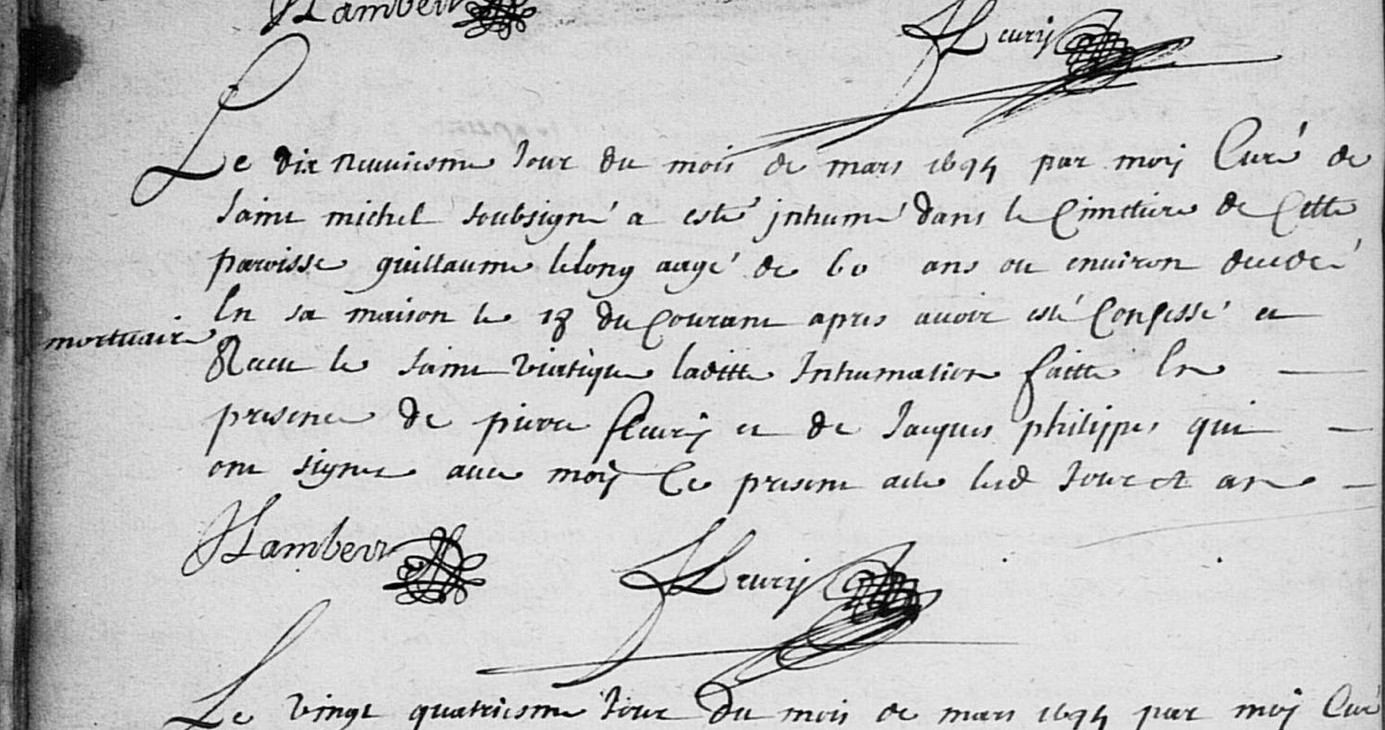 Lambert
Fleury
Le dix neuviesme Jour du mois de mars 1694 par moy Curé de
Saint michel soubsigné a esté jnhumé dans le Cimetiere de Cette
paroisse guillaume lelong aagé de 60 ans ou environ decedé
En sa maison le 18 du Courant apres avoir esté Confessé et
mortuaire
Receu le saint viatique laditte Inhumation faitte En
presence de pierre fleury et de Jacques philippes qui
ont signe avec moy Ce present acte led Jour et an
Lambert
Fleury
Le vingt quatriesme Jour du mois de mars 1694 par moy Curé